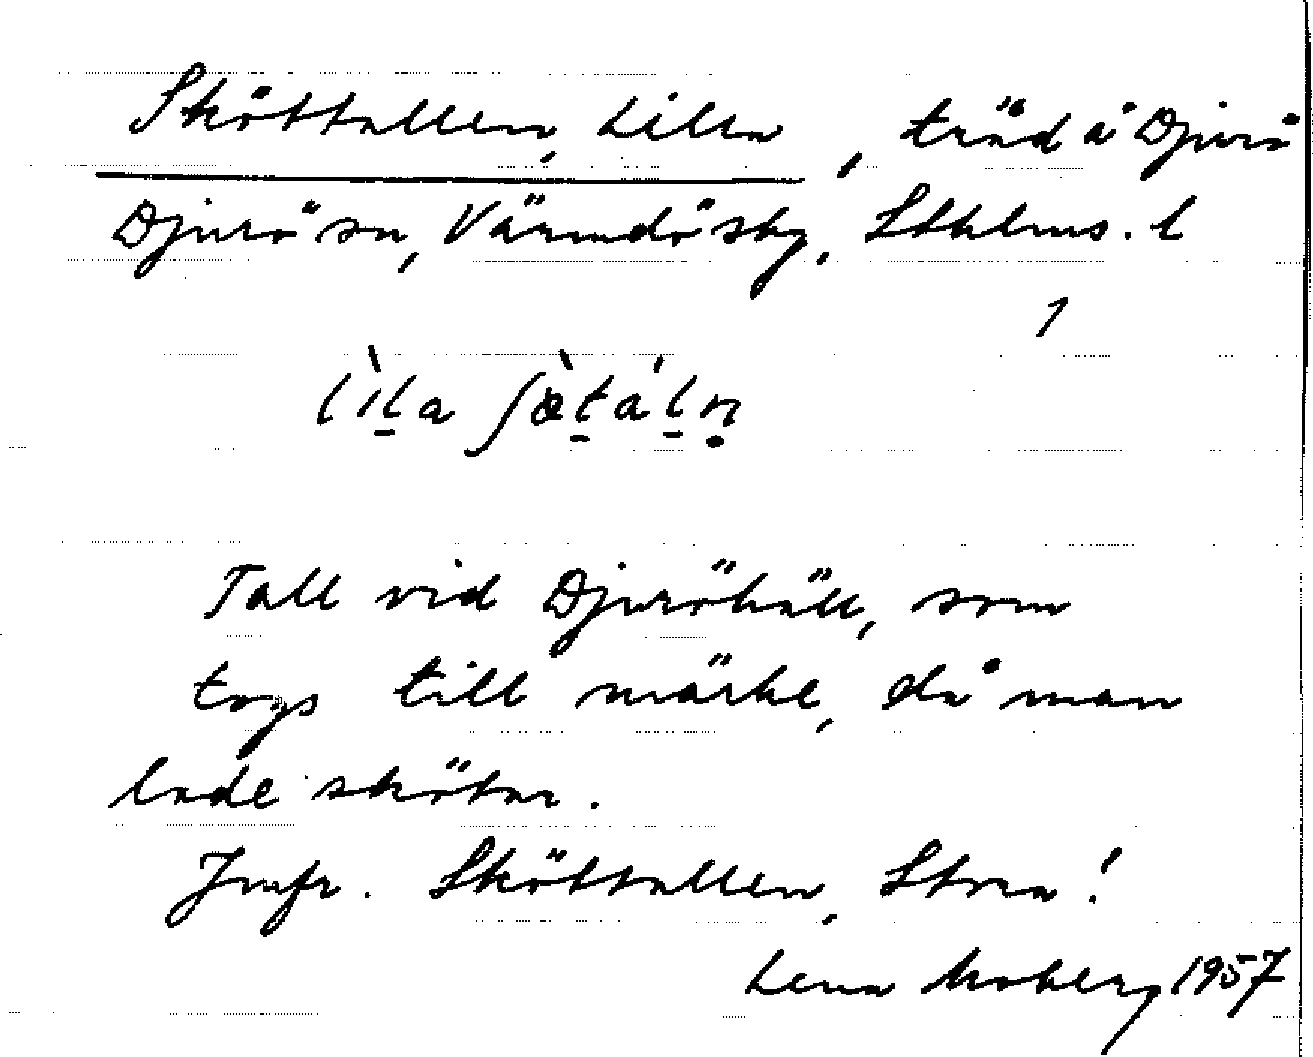 Sköttallen, Lilla, träd å Djurö
Djurö sn, Värmdö skg, Sthlms. l
1
lìḻa ʃæ̀ṯáḻṇ
Tall vid Djuröhäll, som
togs till märke, då man
lade skötar.
Jmfr. Sköttallen, Stora!
Lena Moberg 1957